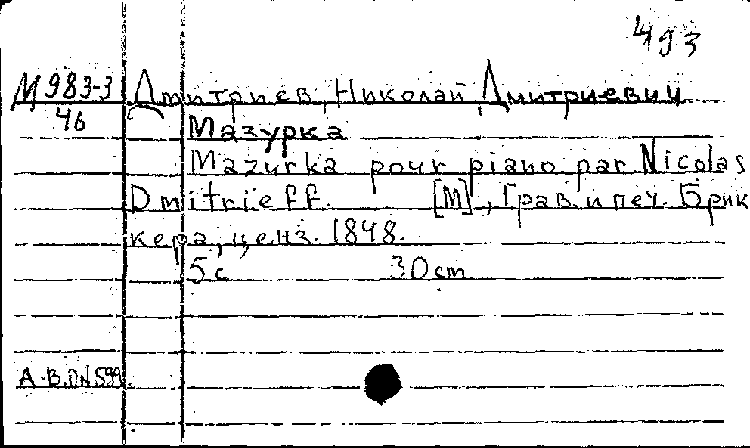 493
М983-3 Дмитриев, Николай Дмитриевич
46
Мазурка
Mazurka pour piano par Nicolas
Dmitrieff. [М], Грав. и печ. Брик
кера, ценз. 1848.
5с 30cm
А-В.